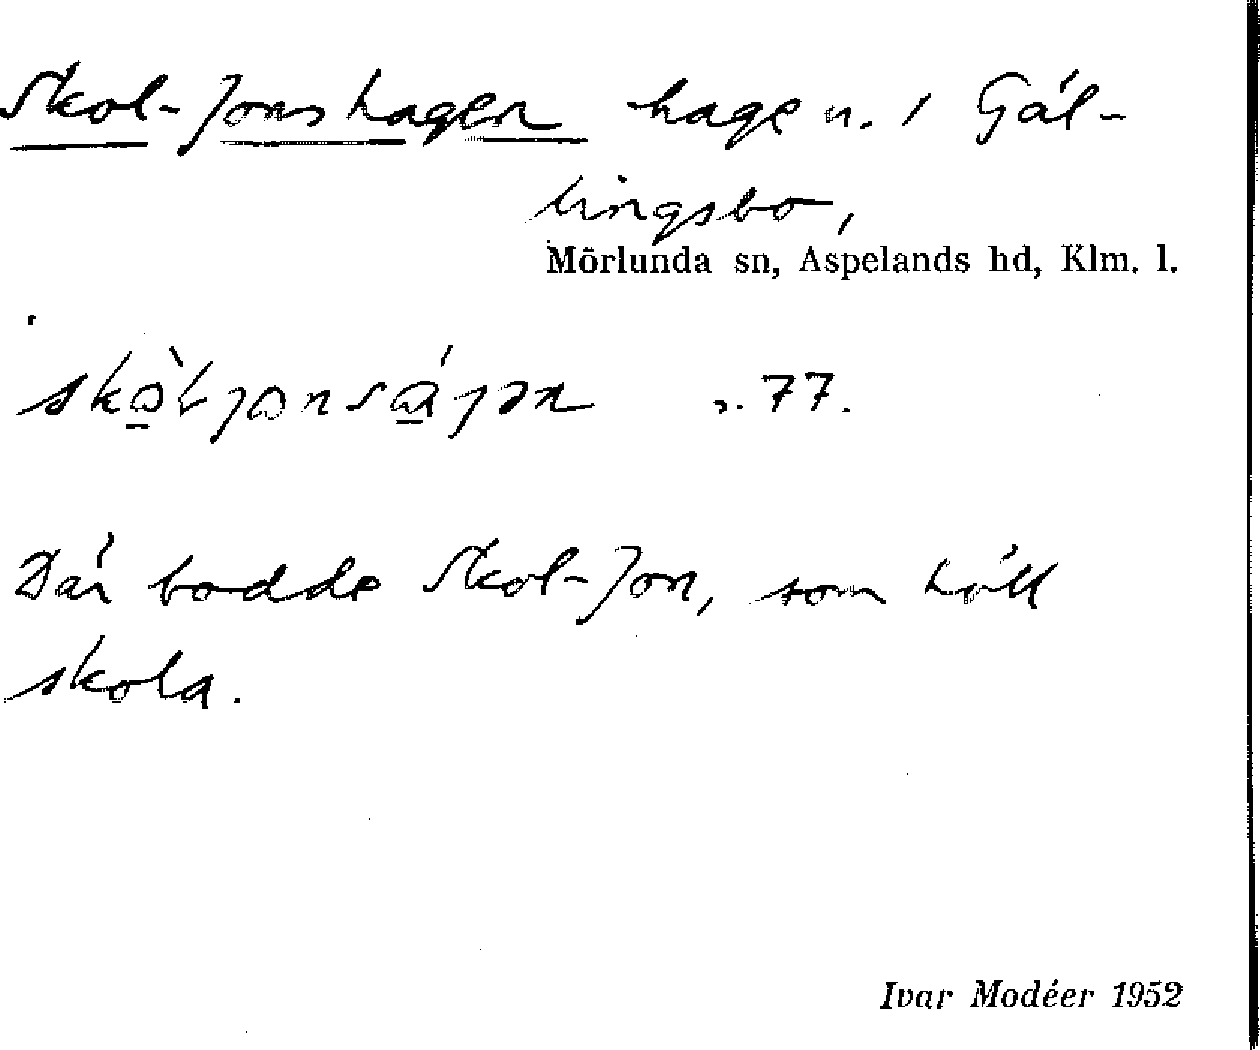 Skol-Jonshagen hage n. 1 Gäl-
lingsbo,
Mörlunda sn, Aspelands hd, Klm. l.
s. 77.
Där bodde Skol-Jon, som höll
skola.
Ivar Modéer 1952